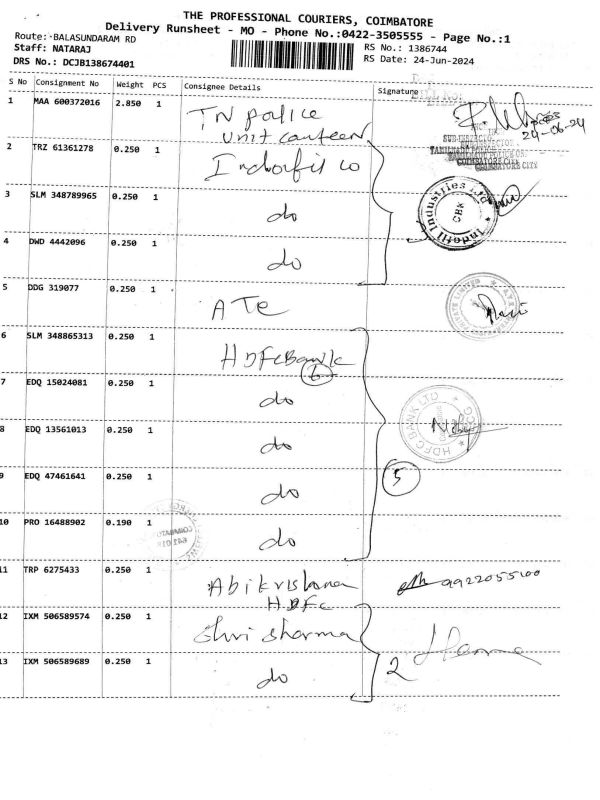 THE PROFESSIONAL COURIERS, COIMBATORE
Delivery Runsheet - MO - Phone No.:0422-3505555 - Page No.:1
Route: BALASUNDARAM RD
Staff: NATARAJ
DRS No.: DCJB138674401
RS No.: 1386744
RS Date: 24-Jun-2024
S No Consignment No Weight PCS Consignee Details Signature
1 MAA 600372016 2.850 1 TN police
unit canteen
24-06-24
SUB-INSPECTOR
COIMBATORE CITY
2 TRZ 61361278 0.250 1 Indofil co
3 SLM 348789965 0.250 1 do
Indofil Industries Ltd
CBE
4 DWD 4442096 0.250 1 do
5 DDG 319077 0.250 1 ATE
6 SLM 348865313 0.250 1 HDFC Bank
6
7 EDQ 15024081 0.250 1 do
HDFC BANK LTD
8 EDQ 13561013 0.250 1 do
9 EDQ 47461641 0.250 1 do
5
10 PRO 16488902 0.190 1 do
11 TRP 6275433 0.250 1 Abikrishana
HDFC
9922055100
12 IXM 506589574 0.250 1 Shri sharma
2
13 IXM 506589689 0.250 1 do